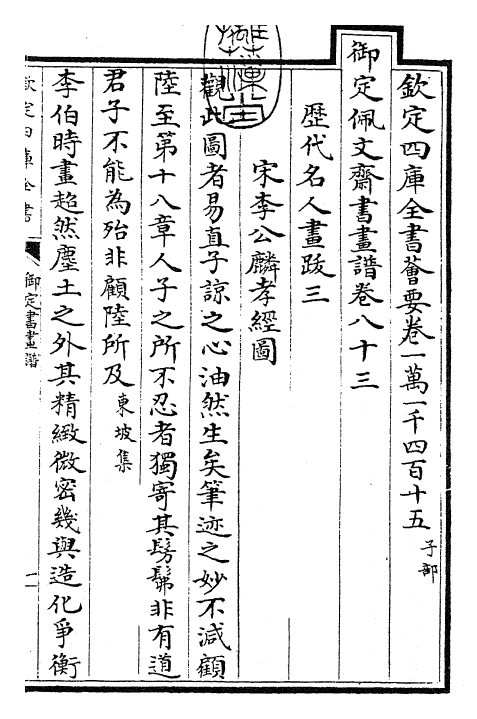 欽定四庫全書薈要卷一萬一千四百十五 子部
御定佩文齋書畫譜卷八十三
歷代名人畫跋三
宋李公麟孝經圖
觀此圖者易直子諒之心油然生矣筆迹之妙不減顧
陸至第十八章人子之所不忍者獨寄其髣髴非有道
君子不能為殆非顧陸所及 東坡集
李伯時畫超然塵土之外其精緻微密幾與造化爭衡
欽定四庫全書 御定書畫譜 一